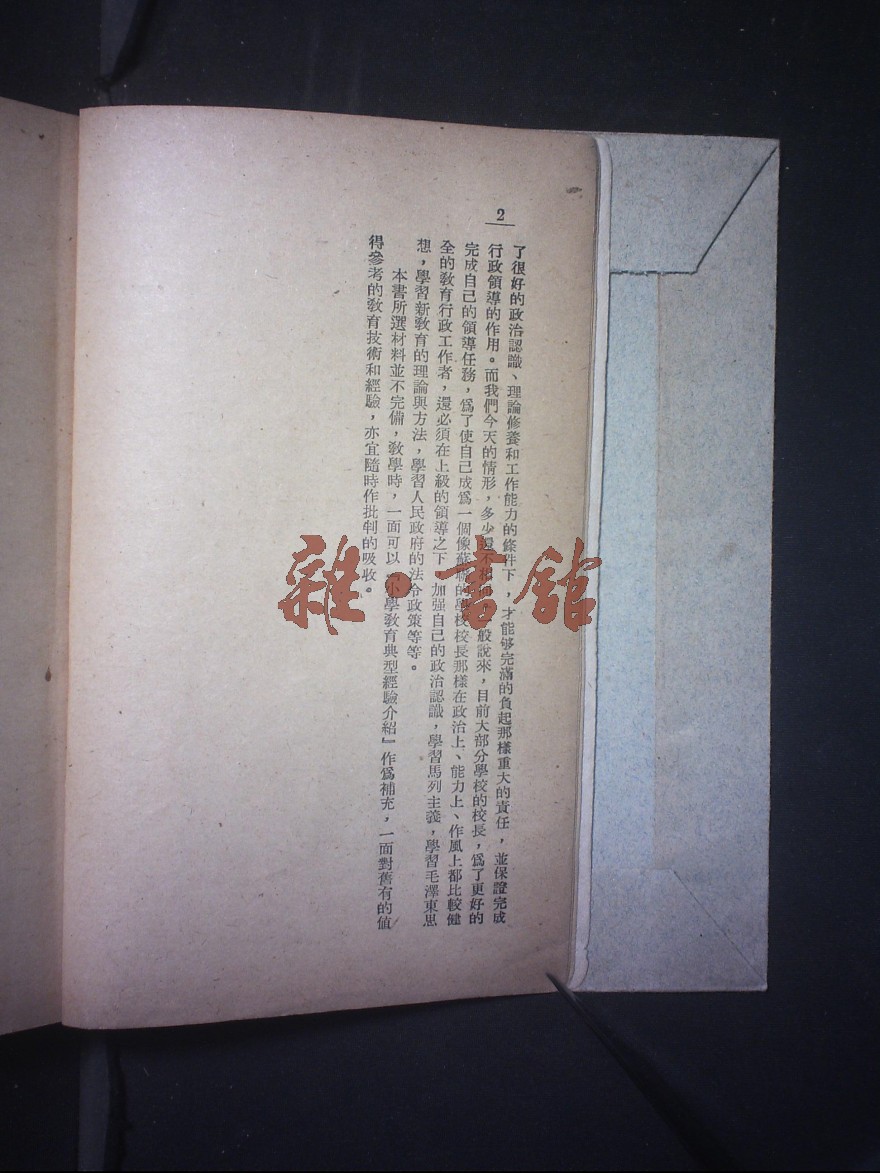 2
了很好的政治認識、理論修養和工作能力的條件下，才能够完滿的負起那樣重大的責任，並保證完成
行政領導的作用。而我們今天的情形，多少還不相同，一般說來，目前大部分學校的校長，爲了更好的
完成自己的領導任務，爲了使自己成爲一個像蘇聯的學校校長那樣在政治上、能力上、作風上都比較健
全的敎育行政工作者，還必須在上級的領導之下，加强自己的政治認識，學習馬列主義，學習毛澤東思
想，學習新敎育的理論與方法，學習人民政府的法令政策等等。
本書所選材料並不完備，敎學時，一面可以『小學敎育典型經驗介紹』作爲補充，一面對舊有的値
得參考的敎育技術和經驗，亦宜隨時作批判的吸收。
雜·書館